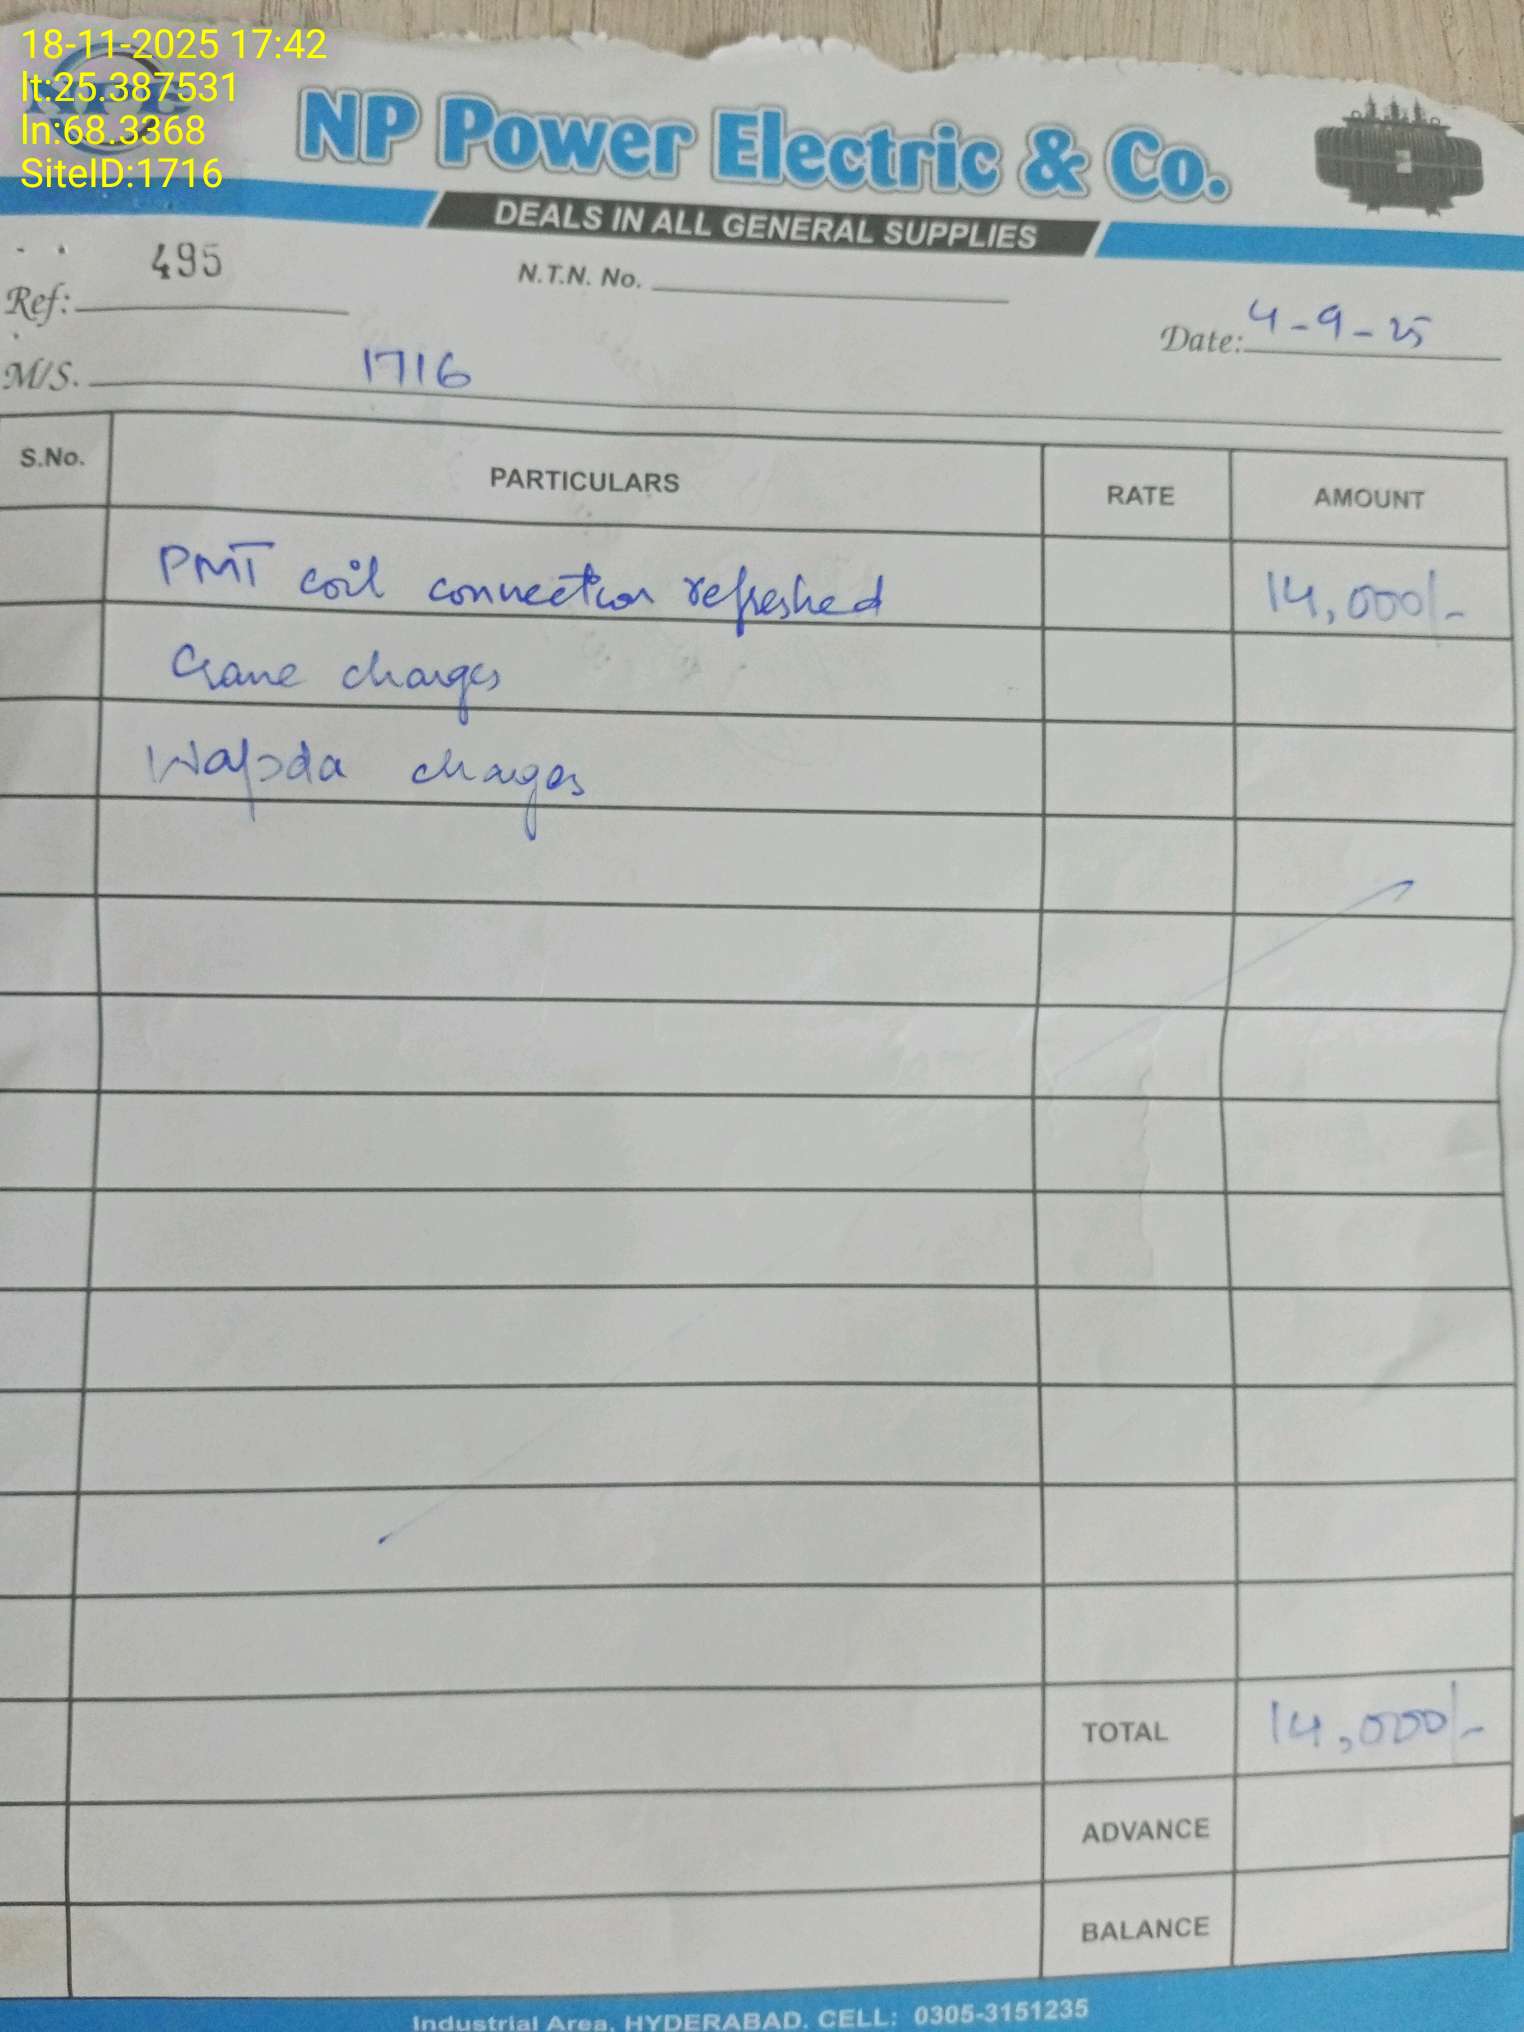 18-11-2025 17:42
lt:25.387531
ln:68.3368
SiteID:1716
NP Power Electric & Co.
DEALS IN ALL GENERAL SUPPLIES
Ref: 495
N.T.N. No.
Date: 4-9-25
M/S. 1716
S.No. PARTICULARS RATE AMOUNT
PMT coil connection refreshed 14,000/-
Crane charges
Wapda charges
TOTAL 14,000/-
ADVANCE
BALANCE
Industrial Area, HYDERABAD. CELL: 0305-3151235